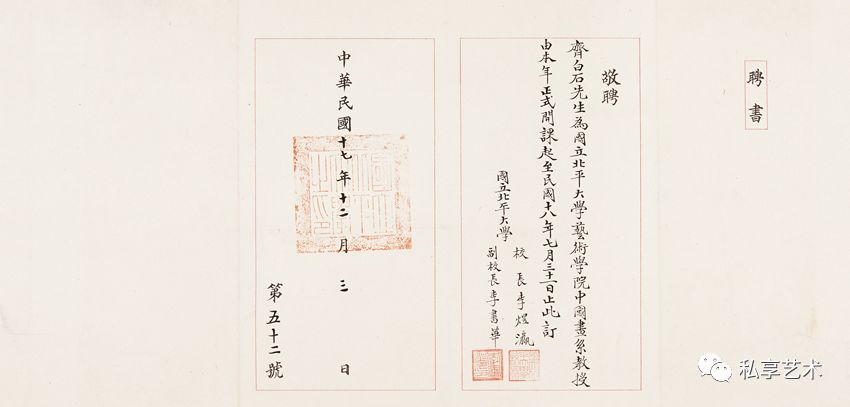 聘書
敬聘
齊白石先生為國立北平大學藝術學院中國畫系教授
由本年正式開課起至民國十八年七月三十一日止此訂
國立北平大學
校長李煜瀛
副校長李書華
中華民國十七年十二月三日
第五十二號
私享艺术